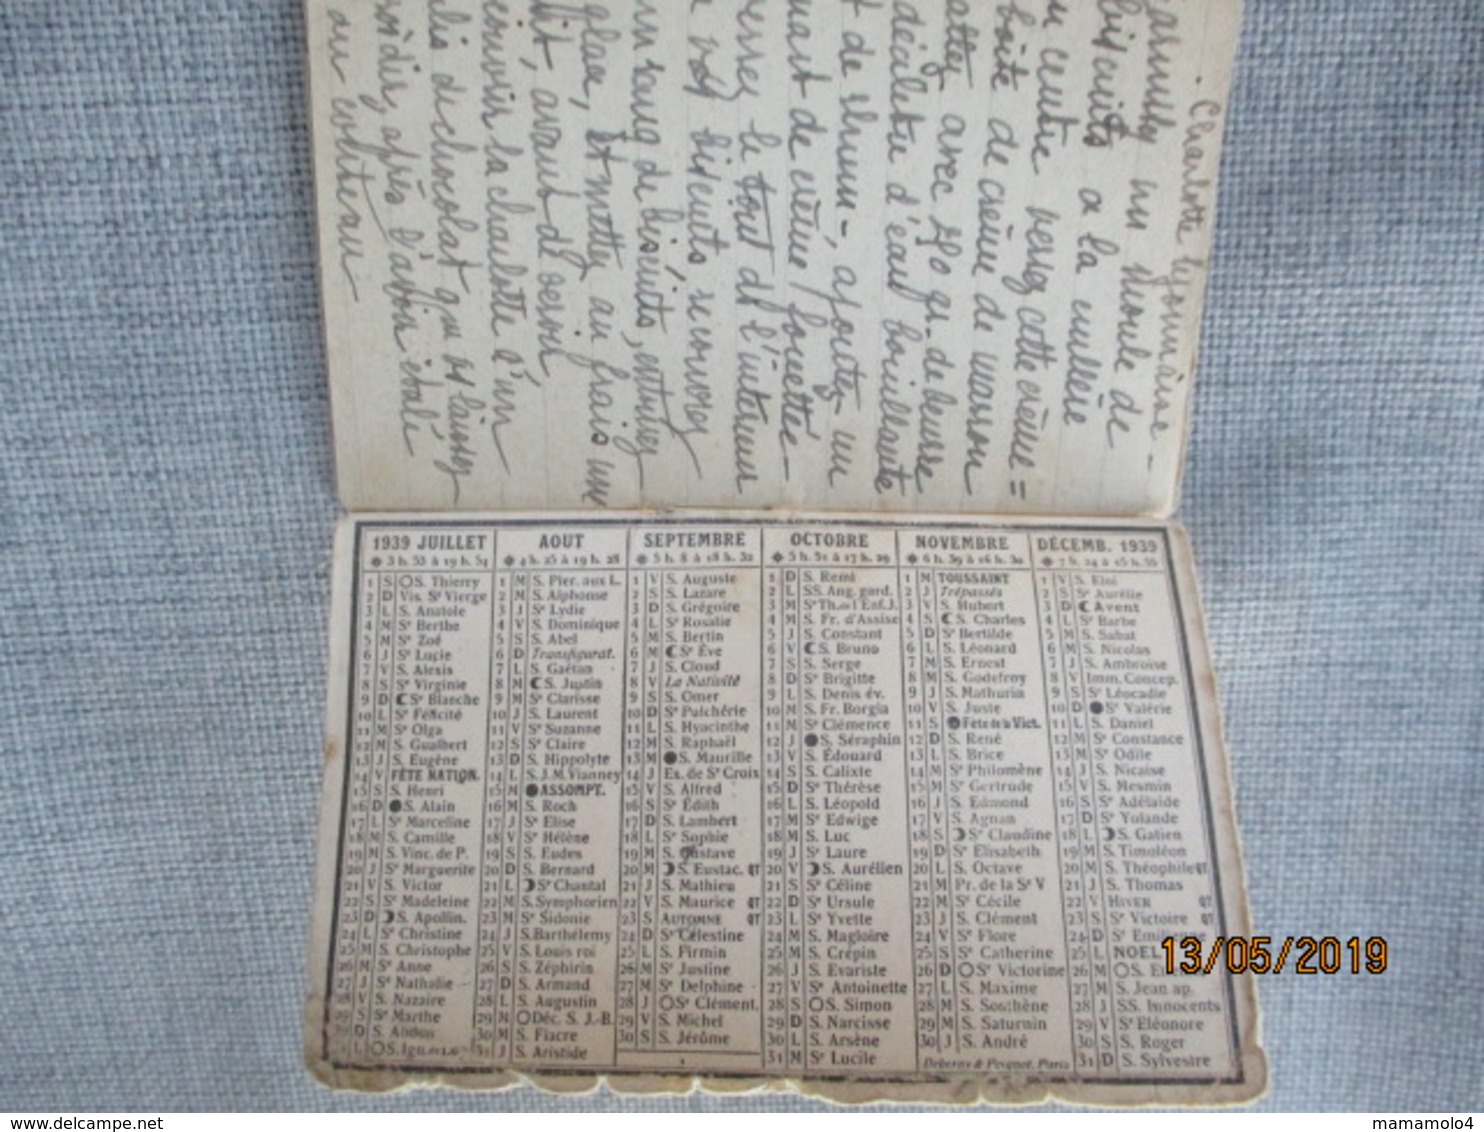 Charlotte Lyonnaise -
garnissez un moule de
biscuits a la cuillère
au centre versez cette crème =
boite de crème de marron
battez avec 250 gr. de beurre
d'eau bouillante
t de rhum -, ajoutez un
quart de crème fouettée -
versez le tout ds l'intérieur
biscuits, recouvrez
un rang de biscuits,
glace, et mettez au frais une
nuit, avant de servir,
couvrir la charlotte d'un
de chocolat que vs laissez
froidir, après l'avoir étalé
au couteau
1939 JUILLET
3 h. 53 à 19 h. 51
1 S S. Thierry
2 D Vis. Ste Vierge
3 L S. Anatole
4 M Ste Berthe
5 M Ste Zoé
6 J Ste Lucie
7 V S. Alexis
8 S Ste Virginie
9 D Ste Blanche
10 L Ste Félicité
11 M Ste Olga
12 M S. Gualbert
13 J S. Eugène
14 V FÊTE NATION.
15 S S. Henri
16 D S. Alain
17 L Ste Marceline
18 M S. Camille
19 M S. Vinc. de P.
20 J Ste Marguerite
21 V S. Victor
22 S Ste Madeleine
23 D S. Apollin.
24 L Ste Christine
25 M S. Christophe
26 M Ste Anne
27 J Ste Nathalie
28 V S. Nazaire
29 S Ste Marthe
30 D S. Abdon
31 L S. Ign. de L.
AOUT
4 h. 25 à 19 h. 28
1 M S. Pier. aux L.
2 M S. Alphonse
3 J Ste Lydie
4 V S. Dominique
5 S S. Abel
6 D Transfigurat.
7 L S. Gaëtan
8 M S. Justin
9 M Ste Clarisse
10 J S. Laurent
11 V Ste Suzanne
12 S Ste Claire
13 D S. Hippolyte
14 L S. J. M. Vianney
15 M ASSOMPT.
16 M S. Roch
17 J Ste Elise
18 V Ste Hélène
19 S S. Eudes
20 D S. Bernard
21 L Ste Chantal
22 M S. Symphorien
23 M Ste Sidonie
24 J S. Barthélemy
25 V S. Louis roi
26 S S. Zéphirin
27 D S. Armand
28 L S. Augustin
29 M Déc. S. J.-B.
30 M S. Fiacre
31 J S. Aristide
SEPTEMBRE
5 h. 8 à 18 h. 32
1 V S. Auguste
2 S S. Lazare
3 D S. Grégoire
4 L Ste Rosalie
5 M S. Bertin
6 M Ste Ève
7 J S. Cloud
8 V La Nativité
9 S S. Omer
10 D Ste Pulchérie
11 L S. Hyacinthe
12 M S. Raphaël
13 M S. Maurille
14 J Ex. de Ste Croix
15 V S. Alfred
16 S Ste Édith
17 D S. Lambert
18 L Ste Sophie
19 M S. Gustave
20 M S. Eustac. QT
21 J S. Mathieu
22 V S. Maurice QT
23 S AUTOMNE QT
24 D Ste Célestine
25 L S. Firmin
26 M Ste Justine
27 M Ste Delphine
28 J Ste Clément.
29 V S. Michel
30 S S. Jérôme
OCTOBRE
5 h. 51 à 17 h. 29
1 D S. Remi
2 L SS. Ang. gard.
3 M Ste Th. de l'Enf. J.
4 M S. Fr. d'Assise
5 J S. Constant
6 V S. Bruno
7 S S. Serge
8 D Ste Brigitte
9 L S. Denis év.
10 M S. Fr. Borgia
11 M Ste Clémence
12 J S. Séraphin
13 V S. Édouard
14 S S. Calixte
15 D Ste Thérèse
16 L S. Léopold
17 M Ste Edwige
18 M S. Luc
19 J Ste Laure
20 V S. Aurélien
21 S Ste Céline
22 D Ste Ursule
23 L Ste Yvette
24 M S. Magloire
25 M S. Crépin
26 J S. Evariste
27 V Ste Antoinette
28 S S. Simon
29 D S. Narcisse
30 L S. Arsène
31 M Ste Lucile
NOVEMBRE
6 h. 39 à 16 h. 30
1 M TOUSSAINT
2 J Trépassés
3 V S. Hubert
4 S S. Charles
5 D Ste Bertilde
6 L S. Léonard
7 M S. Ernest
8 M S. Godefroy
9 J S. Mathurin
10 V S. Juste
11 S Fête de la Vict.
12 D S. René
13 L S. Brice
14 M Ste Philomène
15 M Ste Gertrude
16 J S. Edmond
17 V S. Agnan
18 S Ste Claudine
19 D Ste Elisabeth
20 L S. Octave
21 M Pr. de la Ste V
22 M Ste Cécile
23 J S. Clément
24 V Ste Flore
25 S Ste Catherine
26 D Ste Victorine
27 L S. Maxime
28 M S. Sosthène
29 M S. Saturnin
30 J S. André
Deberny & Peignot. Paris
DÉCEMB. 1939
7 h. 24 à 15 h. 55
1 V S. Eloi
2 S Ste Aurélie
3 D Avent
4 L Ste Barbe
5 M S. Sabat
6 M S. Nicolas
7 J S. Ambroise
8 V Imm. Concep.
9 S Ste Léocadie
10 D Ste Valérie
11 L S. Daniel
12 M Ste Constance
13 M Ste Odile
14 J S. Nicaise
15 V S. Mesmin
16 S Ste Adélaïde
17 D Ste Yolande
18 L S. Gatien
19 M S. Timoléon
20 M S. Théophile QT
21 J S. Thomas
22 V HIVER QT
23 S Ste Victoire QT
24 D
25 L NOËL
26 M
27 M S. Jean ap.
28 J SS. Innocents
29 V Ste Eléonore
30 S S. Roger
31 D S. Sylvestre
13/05/2019
www.delcampe.net
mamamolo4